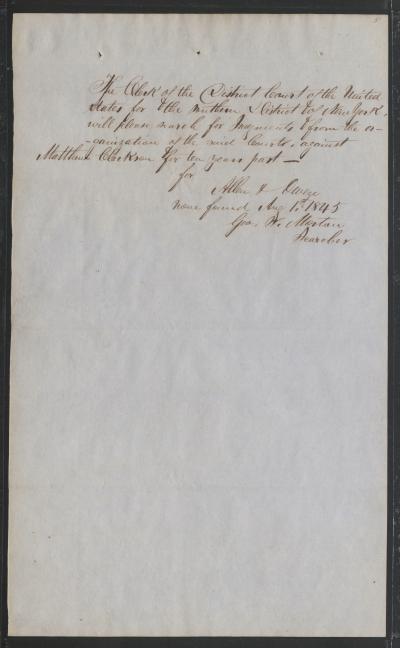 5
The Clerk of the District Court of the United
States for the Southern District of New York,
will please search for Judgments from the or-
-ganization of the said Courts, against
Matthew Clarkson for ten years past —
for
Allen &
None found Aug 1. 1845
Geo. W. Morton
Searcher